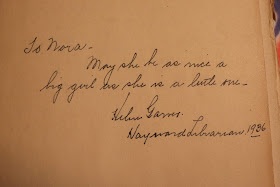 To Nora -
May she be as nice a
big girl as she is a little one -
Helen
Hayward Librarian, 1936